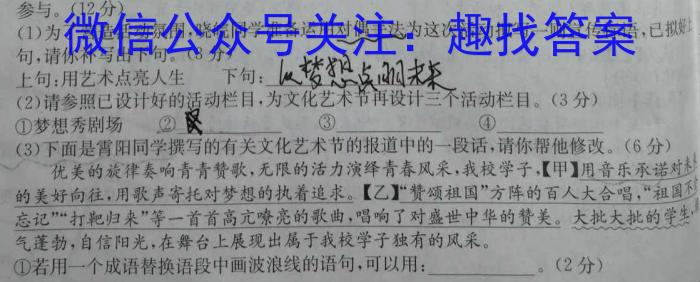 参与。(12分)
微信公众号关注：趣找答案
句,请你补写出下句。(3分)
上句:用艺术点亮人生 下句: 以梦想点明未来
(2)请参照已设计好的活动栏目,为文化艺术节再设计三个活动栏目。(3分)
①梦想秀剧场 ② ③ ④
(3)下面是霄阳同学撰写的有关文化艺术节的报道中的一段话,请你帮他修改。(6分)
优美的旋律奏响青青赞歌,无限的活力演绎青春风采,我校学子,【甲】用音乐承诺对
的美好向往,用歌声寄托对梦想的执着追求。【乙】“赞颂祖国”方阵的百人大合唱,“祖国
忘记”“打靶归来”等一首首高亢嘹亮的歌曲,唱响了对盛世中华的赞美。大批大批的学生
气蓬勃,自信阳光,在舞台上展现出属于我校学子独有的风采。
①若用一个成语替换语段中画波浪线的语句,可以用: 。(2分)